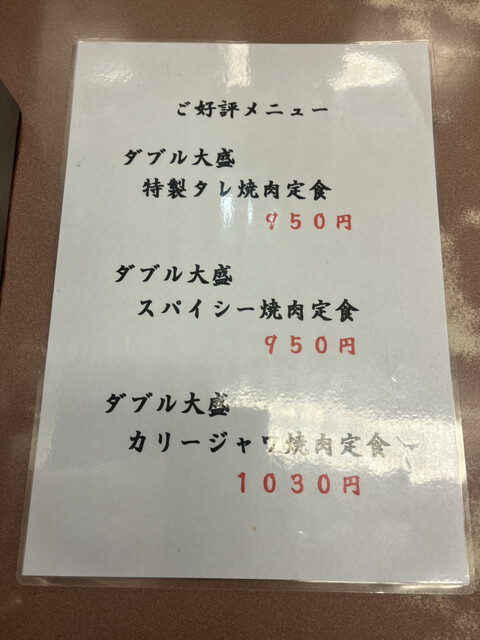 ご好評メニュー
ダブル大盛
特製タレ焼肉定食
950円
ダブル大盛
スパイシー焼肉定食
950円
ダブル大盛
カリージャワ焼肉定食
1030円